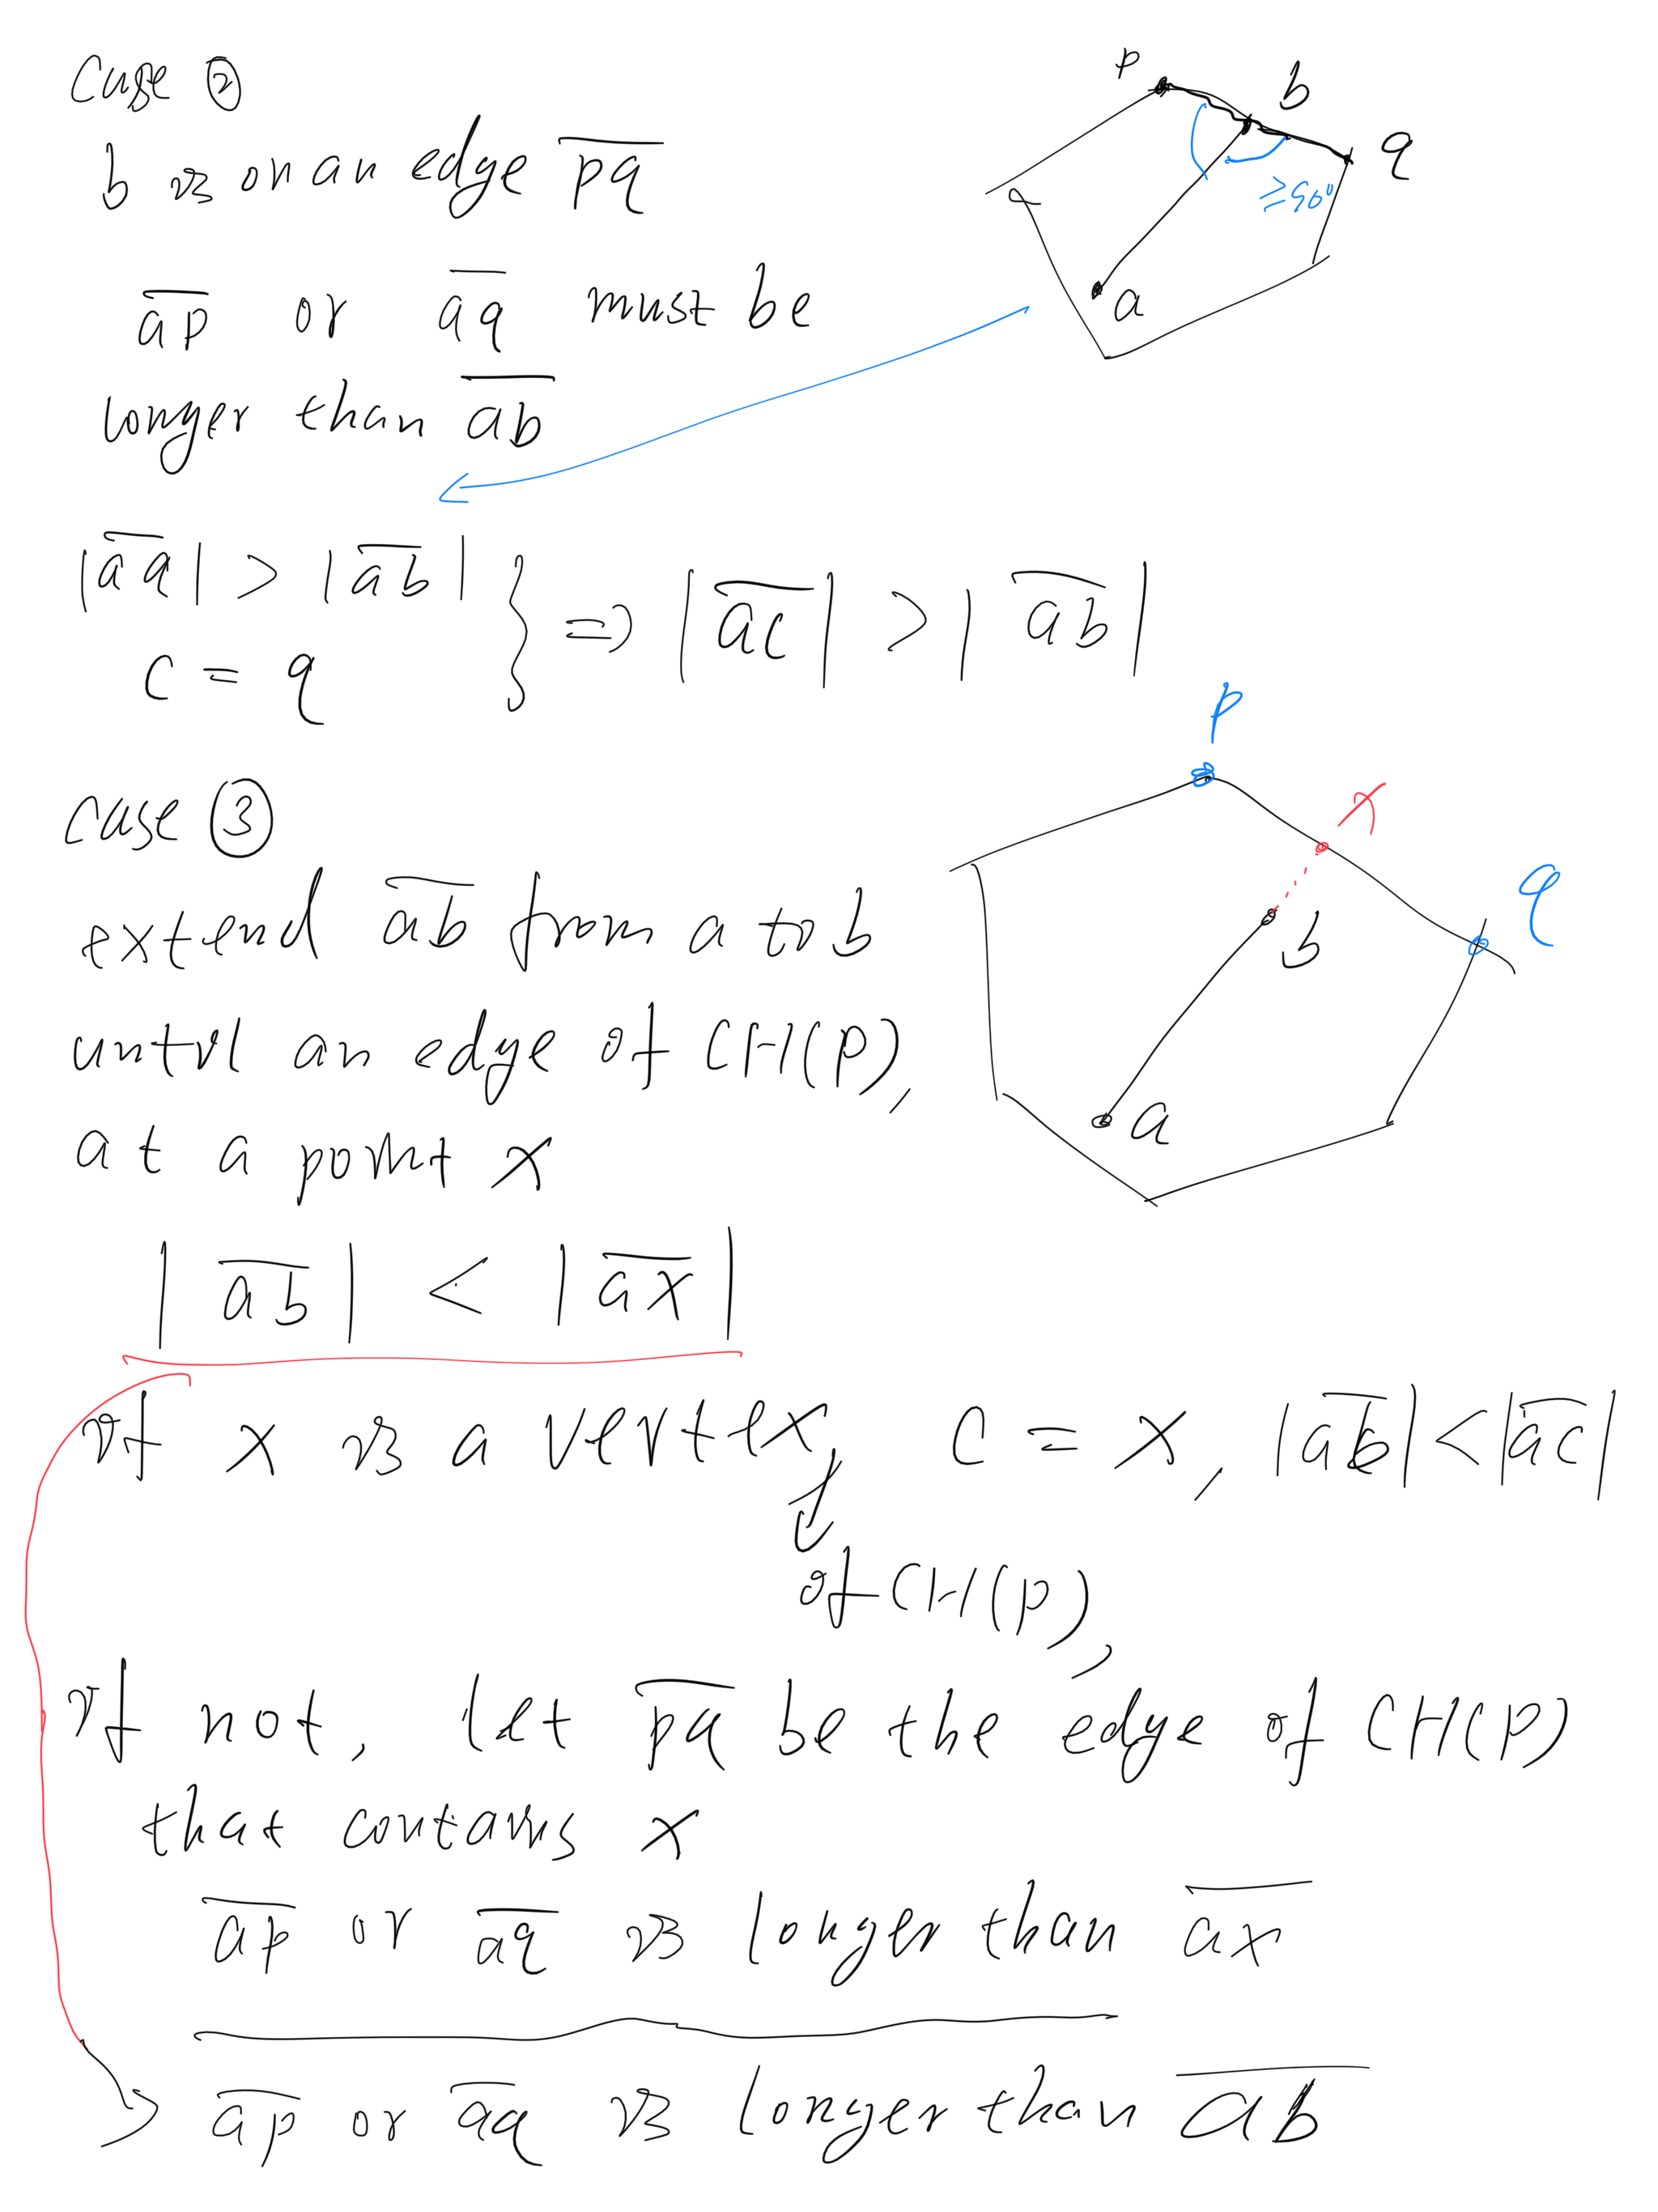 Case ②
b is on an edge p̅q̅
a̅p̅ or a̅q̅ must be
longer than a̅b̅
p
b
q
≥90°
a
|a̅q̅| > |a̅b̅|
c = q
} ⇒ |a̅c̅| > |a̅b̅|
case ③
extend a̅b̅ from a to b
until an edge of CH(P),
at a point x
p
x
q
b
a
|a̅b̅| < |a̅x̅|
if x is a vertex c = x, |a̅b̅| < |a̅c̅|
of CH(P),
if not, let p̅q̅ be the edge of CH(P)
that contains x
a̅p̅ or a̅q̅ is longer than a̅x̅
a̅p̅ or a̅q̅ is longer than a̅b̅